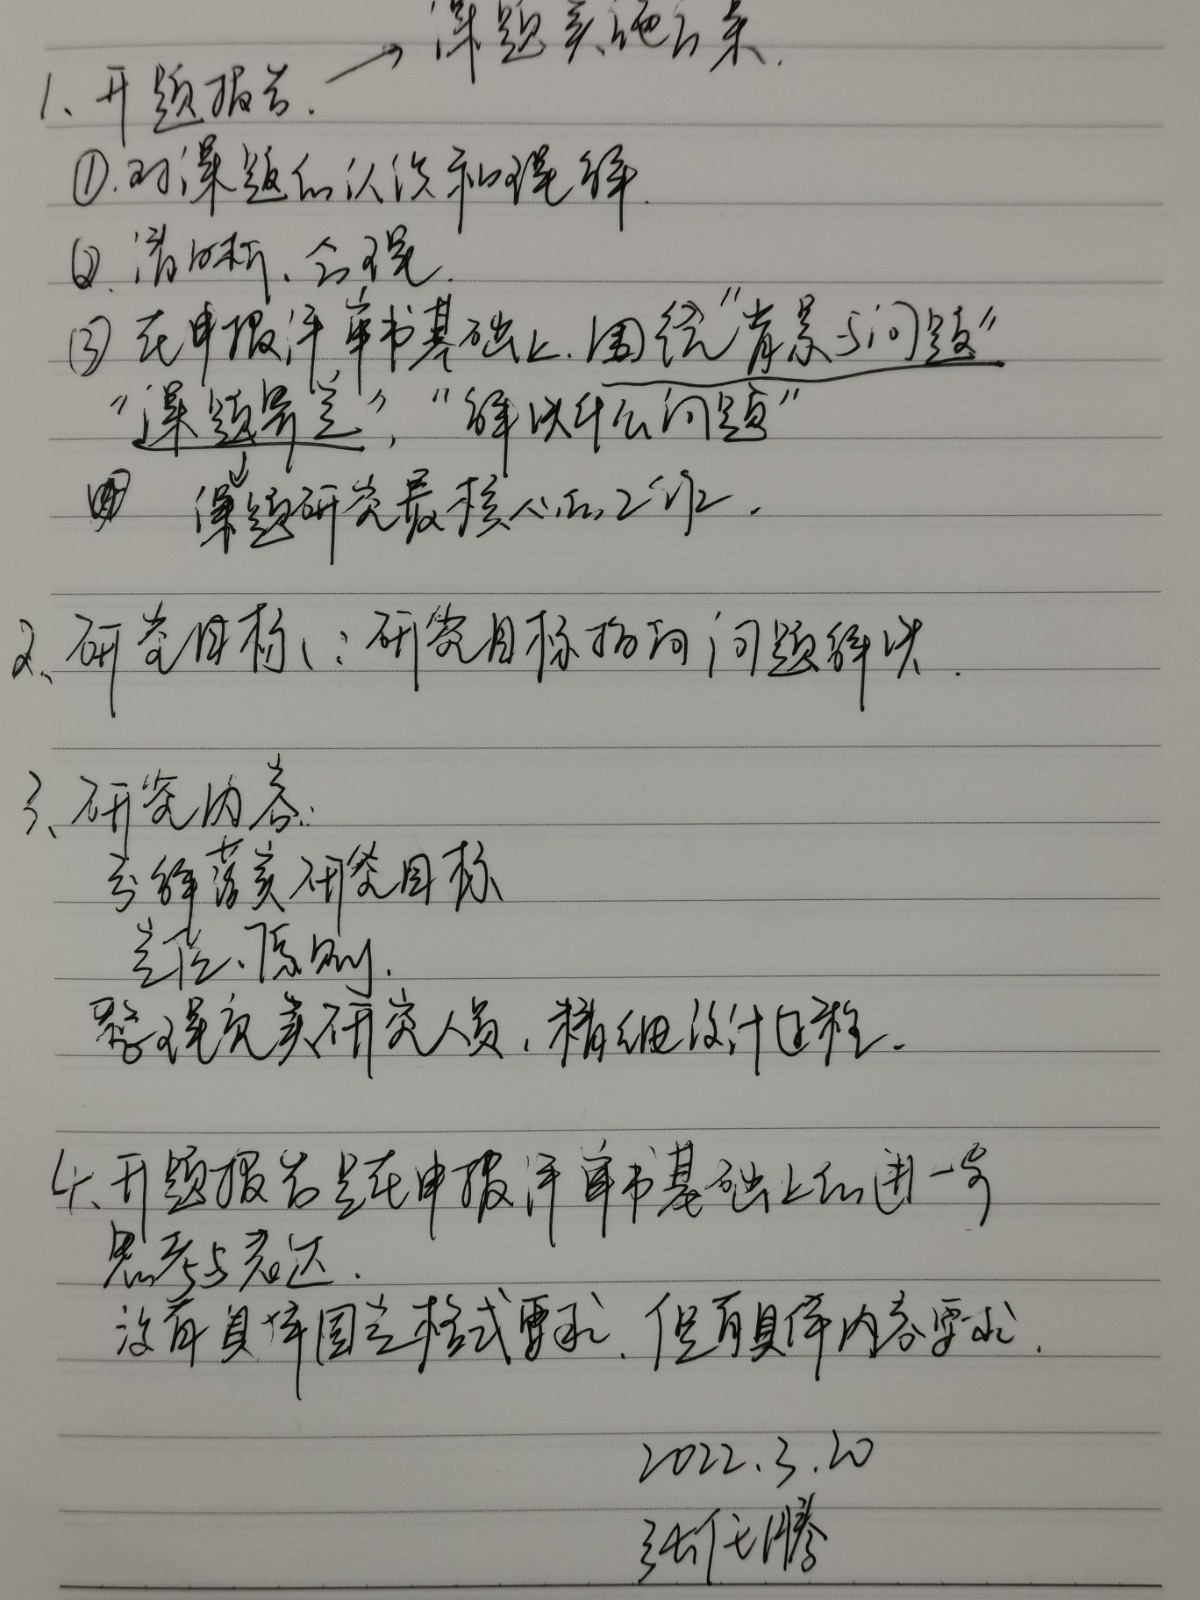 课题实施方案.
1、开题报告. →
①.对课题的认识和理解.
②.清晰、合理.
③在申报评审书基础上.围绕"背景与问题"
"课题界定","解决什么问题"
④ 课题研究最核心的工作.
2、研究目标:研究目标指向问题解决.
3、研究内容:
分解落实研究目标
定位、原则.
整理负责研究人员,精细设计过程.
4、开题报告是在申报评审书基础上的进一步
思考与表达.
没有具体固定格式要求.但有具体内容要求.
2022.3.20
张 腾